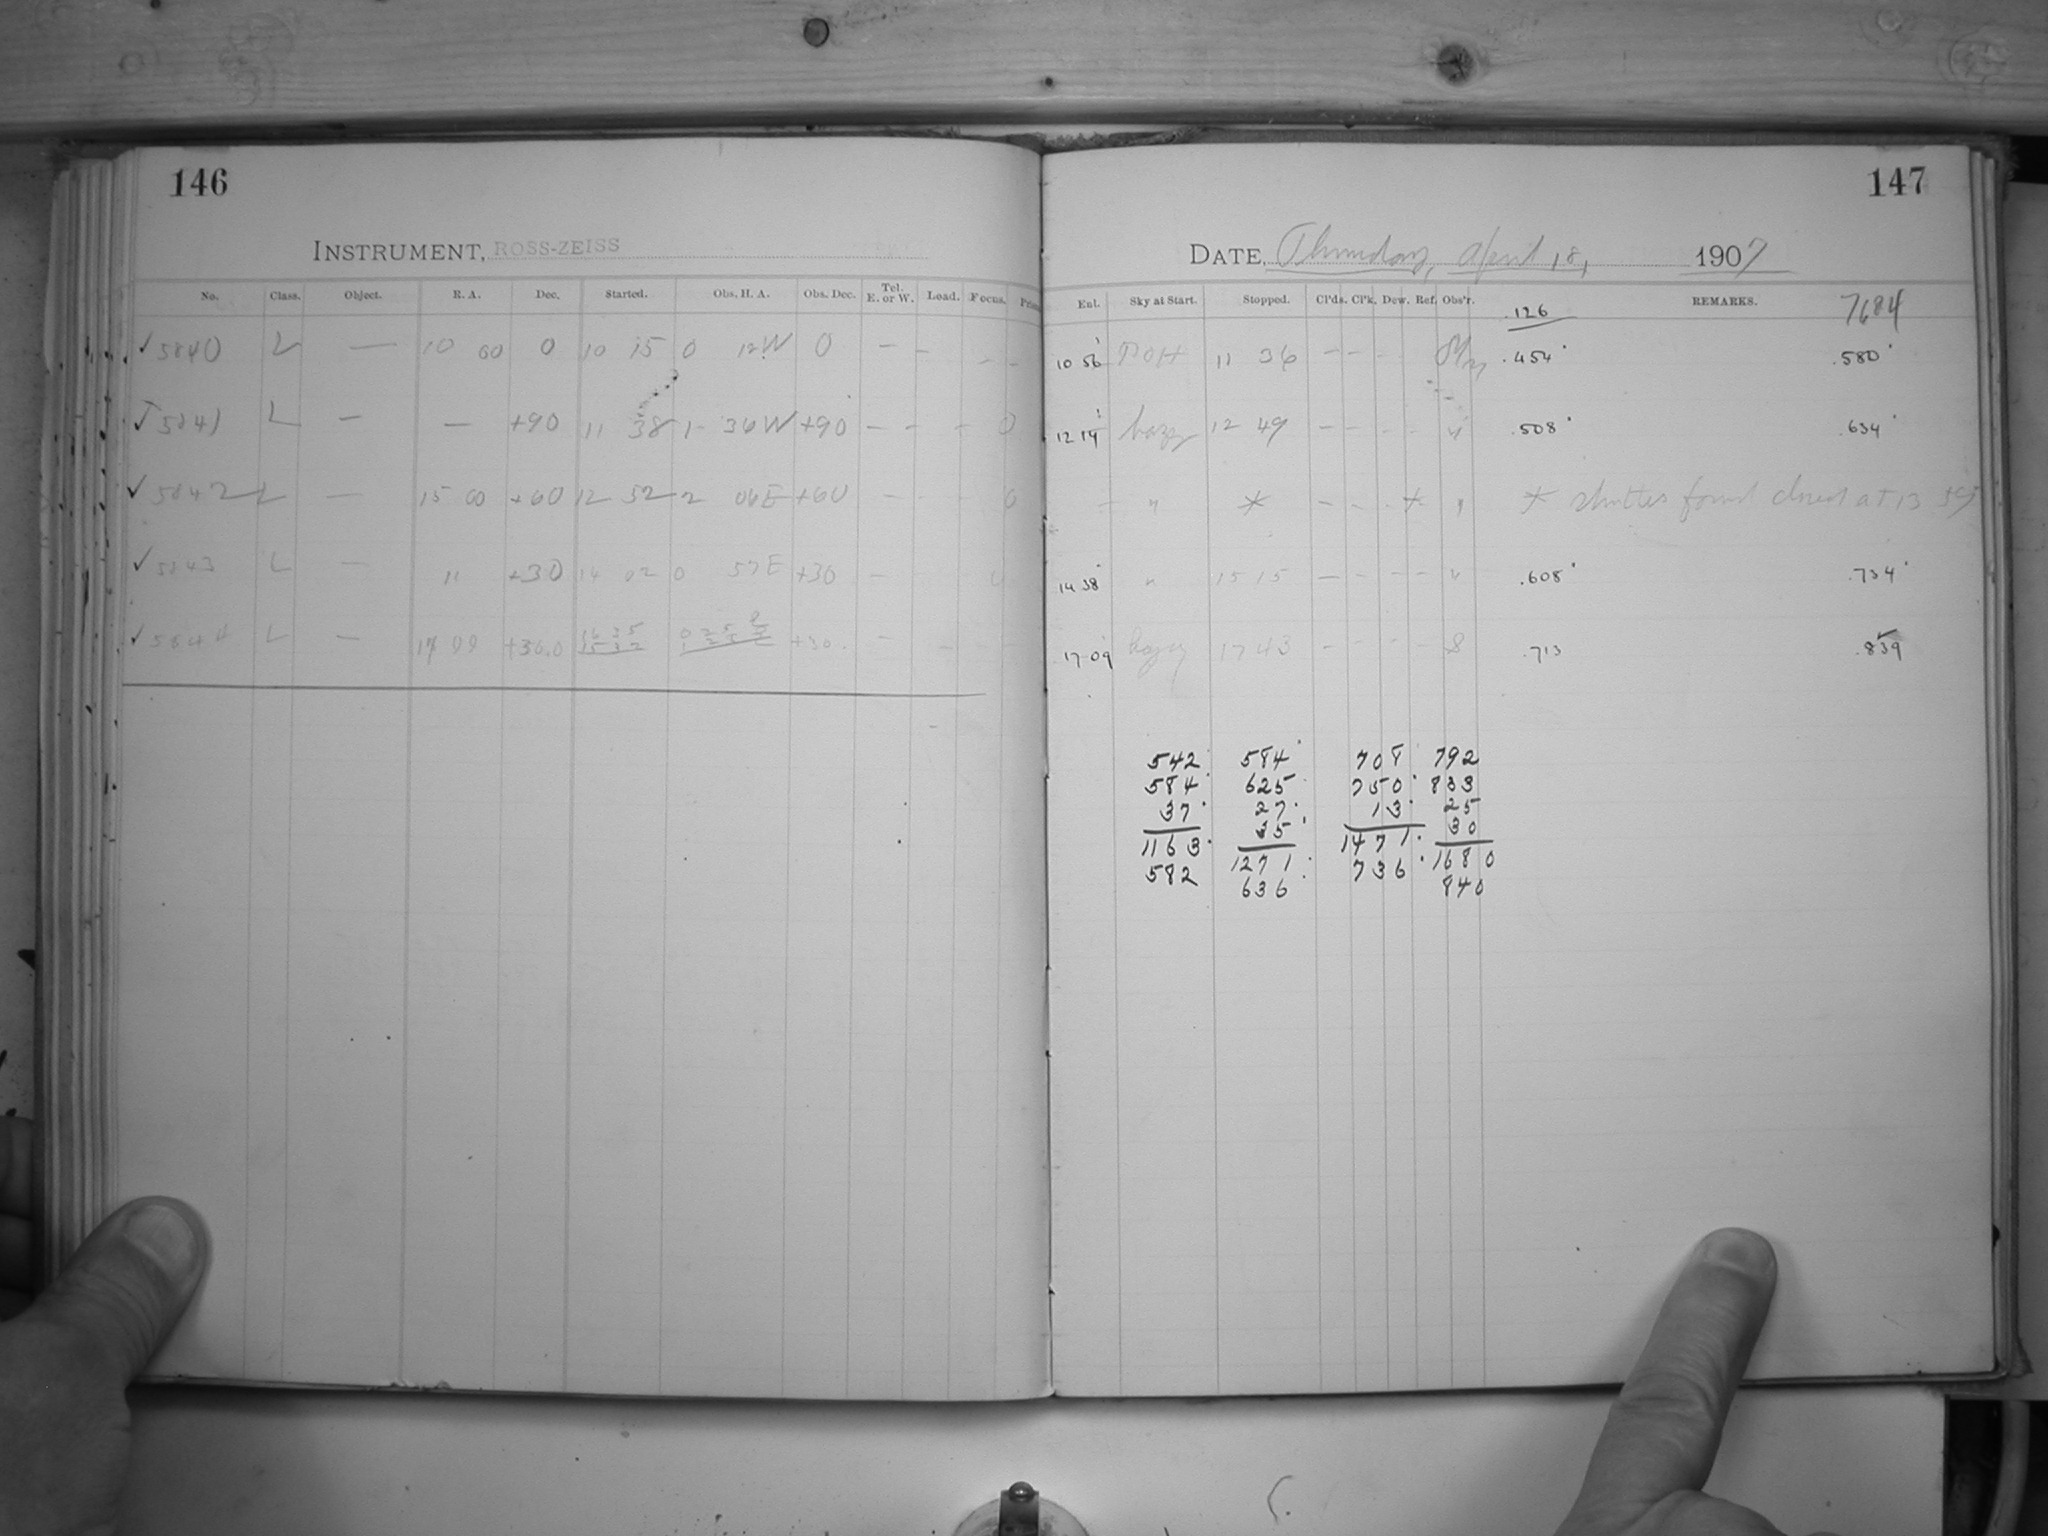 146
INSTRUMENT, ROSS-ZEISS
No. Class. Object. R. A. Dec. Started. Obs. H. A. Obs. Dec. Tel. E. or W. Load. Focus.
✓ 5840 L — 10 00 0 10 15 0 12W 0 — — — —
5841 L — — +90 11 38 1 36W +90 — — — 0
✓ 5842 L — 15 00 +60 12 52 2 06E +60 — — — 0
✓ 5843 L — " +30 14 02 0 57E +30 — —
✓ 5844 L — 17 00 +30.0 +30. — —
147
DATE, Thursday, April 18, 1907
Ent. Sky at Start. Stopped. Cl'ds. Cl'k. Dew. Ref. Obs'r. REMARKS.
.126 7684
10 56 11 36 — — .454 .580
12 14 hazy 12 49 — — — — " .508 .634
— " * — — — * " * shutter found closed at 13 59
14 38 " 15 15 — — — — " .608 .734
17 09 hazy 17 43 — — — — 8 .713 .839
542 584 708 792
584 625 750 833
37 27 13 25
35 30
1163 1271 1471 1680
582 636 736 840